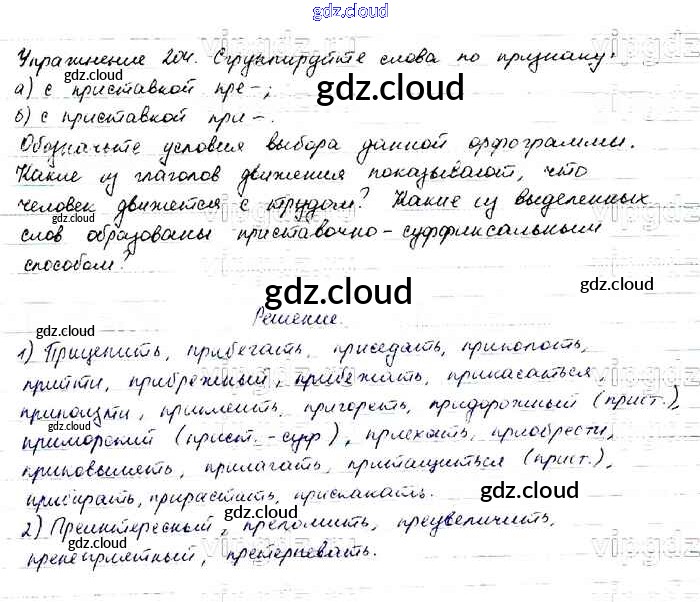 gdz.cloud
Упражнение 204. Сгруппируйте слова по признаку:
а) с приставкой пре-;
б) с приставкой при-.
Обозначьте условия выбора данной орфограммы.
Какие из глаголов движения показывают, что
человек движется с трудом? Какие из выделенных
слов образованы приставочно-суффиксальным
способом?
Решение.
1) Прицепить, прибегать, приседать, приколоть,
прийти, прибрежный, прибежать, прикасаться,
приползти, приклеить, пригореть, придорожный (прист.),
приморский (прист.-суф), приехать, приобрести,
прилагать, притащиться (прист.),
прирастать, прискакать.
2) Преинтересный, преломить, преувеличить,
пренеприятный, претерпевать.
gdz.cloud
gdz.cloud
gdz.cloud
gdz.cloud
gdz.cloud
gdz.cloud
gdz.cloud
gdz.cloud
gdz.cloud
gdz.cloud
gdz.cloud
gdz.cloud